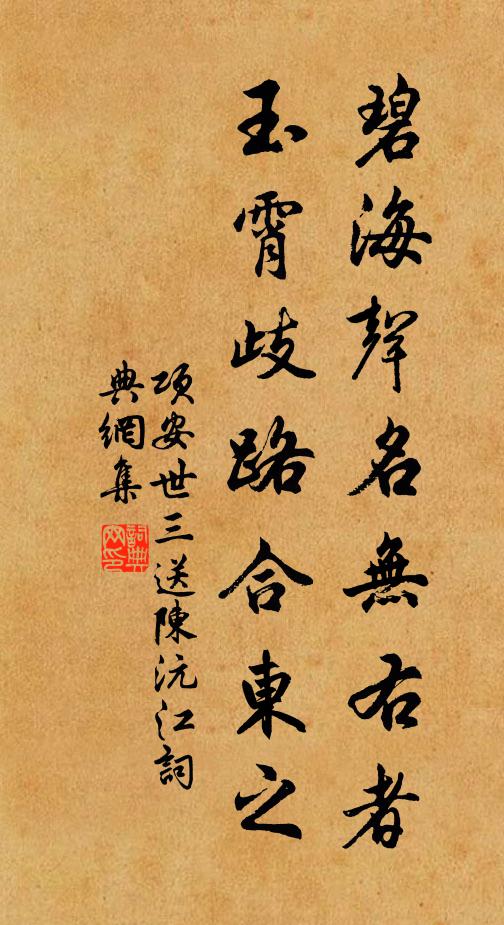 碧海聲名無右者
玉霄歧路合東之
項安世三送陳沅江詞
典網集
詞典網印